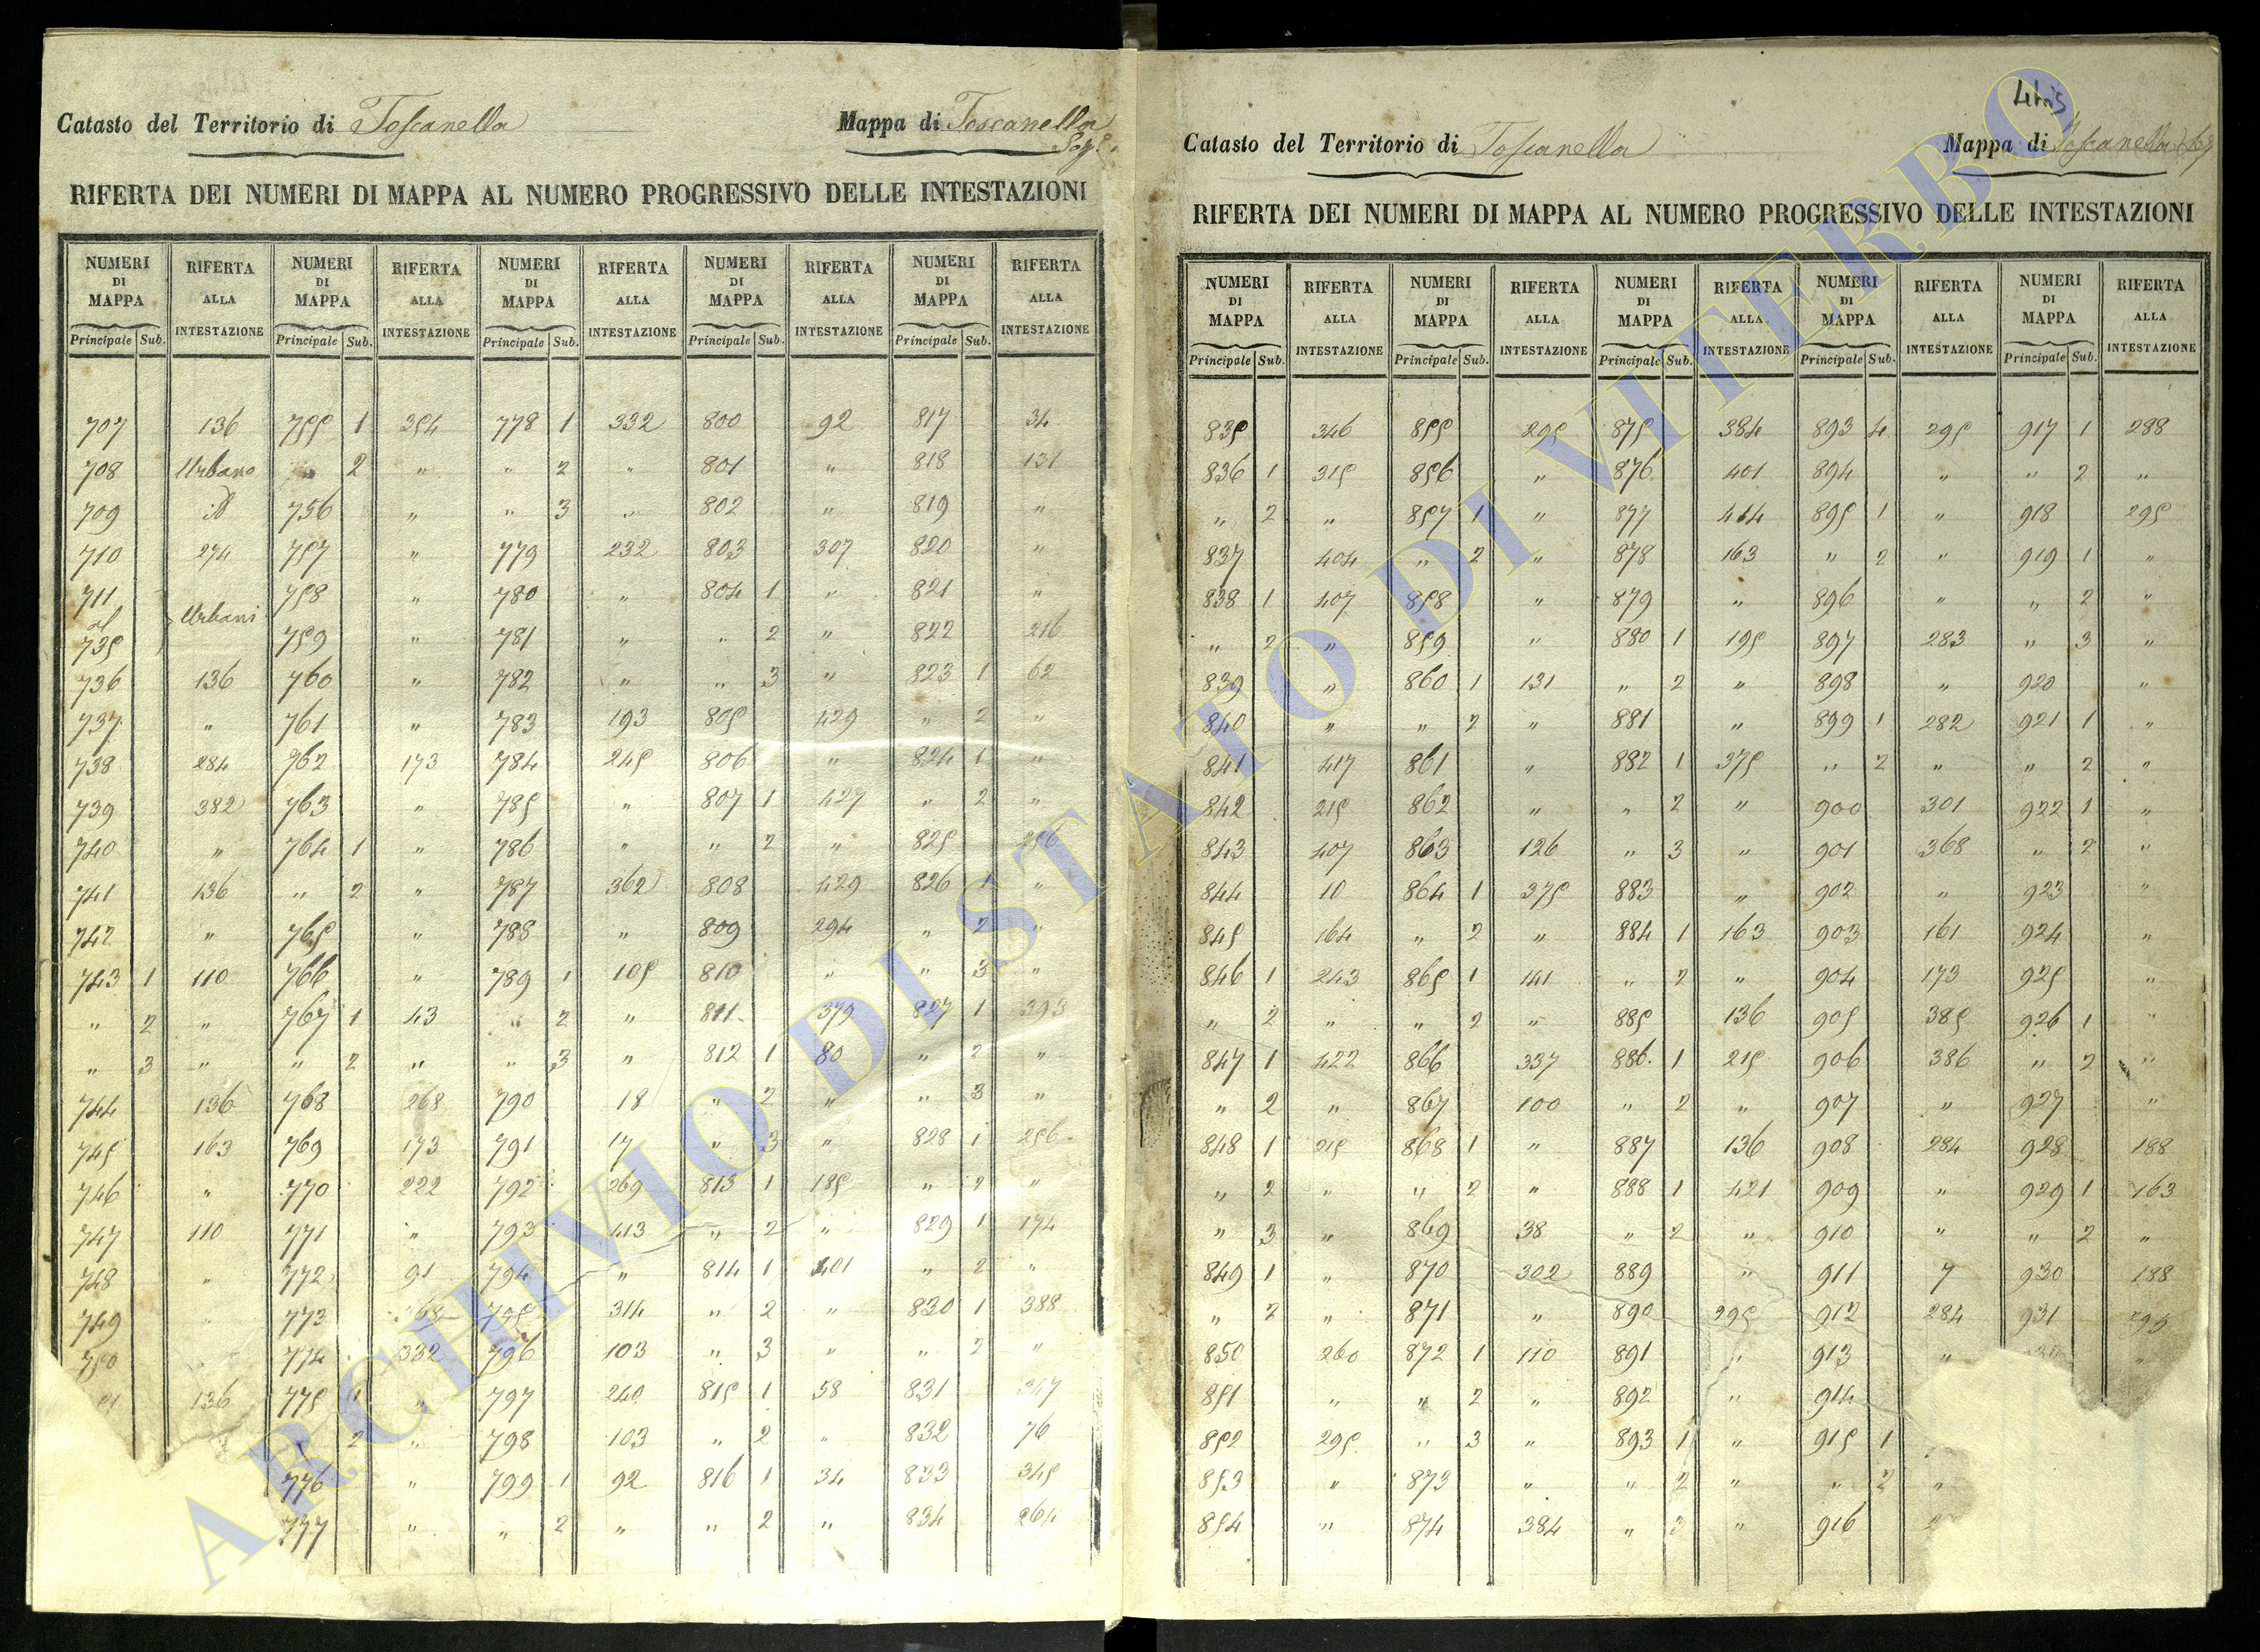 Catasto del Territorio di Toscanella Mappa di Toscanella
RIFERTA DEI NUMERI DI MAPPA AL NUMERO PROGRESSIVO DELLE INTESTAZIONI
NUMERI DI MAPPA RIFERTA ALLA INTESTAZIONE NUMERI DI MAPPA RIFERTA ALLA INTESTAZIONE NUMERI DI MAPPA RIFERTA ALLA INTESTAZIONE NUMERI DI MAPPA RIFERTA ALLA INTESTAZIONE NUMERI DI MAPPA RIFERTA ALLA INTESTAZIONE
Principale Sub. Principale Sub. Principale Sub. Principale Sub. Principale Sub.
707 136 755 1 354 778 1 332 800 92 817 34
708 Urbano " 2 " " 2 " 801 " 818 131
709 id 756 " " 3 " 802 " 819 "
710 274 757 " 779 232 803 307 820 "
711 758 " 780 " 804 1 " 821 "
al Urbani
735 759 " 781 " " 2 " 822 216
736 136 760 " 782 " " 3 " 823 1 62
737 " 761 " 783 193 805 429 " 2 "
738 284 762 173 784 245 806 " 824 1 "
739 382 763 " 785 " 807 1 427 " 2 "
740 " 764 1 " 786 " " 2 " 825 256
741 136 " 2 " 787 362 808 429 826 1 "
742 " 765 " 788 " 809 294 " 2 "
743 1 110 766 " 789 1 105 810 " " 3 "
" 2 " 767 1 43 " 2 " 811 379 827 1 393
" 3 " " 2 " " 3 " 812 1 80 " 2 "
744 136 768 268 790 18 " 2 " " 3 "
745 163 769 173 791 17 " 3 " 828 1 256
746 " 770 222 792 269 813 1 185 " 2 "
747 110 771 " 793 413 " 2 " 829 1 174
748 " 772 91 794 " 814 1 401 " 2 "
749 773 795 314 " 2 " 830 1 388
750 774 332 796 103 " 3 " " 2 "
136 775 1 " 797 240 815 1 58 831 347
2 " 798 103 " 2 " 832 76
776 " 799 1 92 816 1 34 833 345
777 " " 2 " " 2 " 834 264
4bis
Catasto del Territorio di Toscanella Mappa di Toscanella
RIFERTA DEI NUMERI DI MAPPA AL NUMERO PROGRESSIVO DELLE INTESTAZIONI
NUMERI DI MAPPA RIFERTA ALLA INTESTAZIONE NUMERI DI MAPPA RIFERTA ALLA INTESTAZIONE NUMERI DI MAPPA RIFERTA ALLA INTESTAZIONE NUMERI DI MAPPA RIFERTA ALLA INTESTAZIONE NUMERI DI MAPPA RIFERTA ALLA INTESTAZIONE
Principale Sub. Principale Sub. Principale Sub. Principale Sub. Principale Sub.
835 346 855 295 875 384 893 4 295 917 1 288
836 1 315 856 " 876 401 894 " " 2 "
" 2 " 857 1 " 877 414 895 1 " 918 295
837 404 " 2 " 878 163 " 2 " 919 1 "
838 1 407 858 " 879 " 896 " " 2 "
" 2 " 859 " 880 1 195 897 283 " 3 "
839 " 860 1 131 " 2 " 898 " 920 "
840 " " 2 " 881 " 899 1 282 921 1 "
841 417 861 " 882 1 375 " 2 " " 2 "
842 215 862 " " 2 " 900 301 922 1 "
843 407 863 126 " 3 " 901 368 " 2 "
844 10 864 1 375 883 " 902 " 923 "
845 164 " 2 " 884 1 163 903 161 924 "
846 1 243 865 1 141 " 2 " 904 173 925 "
" 2 " " 2 " 885 136 905 385 926 1 "
847 1 422 866 337 886 1 215 906 386 " 2 "
" 2 " 867 100 " 2 " 907 " 927 "
848 1 215 868 1 " 887 136 908 284 928 188
" 2 " " 2 " 888 1 421 909 " 929 1 163
" 3 " 869 38 " 2 " 910 " " 2 "
849 1 " 870 302 889 " 911 7 930 188
" 2 " 871 " 890 295 912 284 931 295
850 260 872 1 110 891 " 913 "
851 " " 2 " 892 " 914
852 295 " 3 " 893 1 " 915 1
853 " 873 " " 2 " " 2 "
854 " 874 384 " 3 " 916
ARCHIVIO DI STATO DI VITERBO